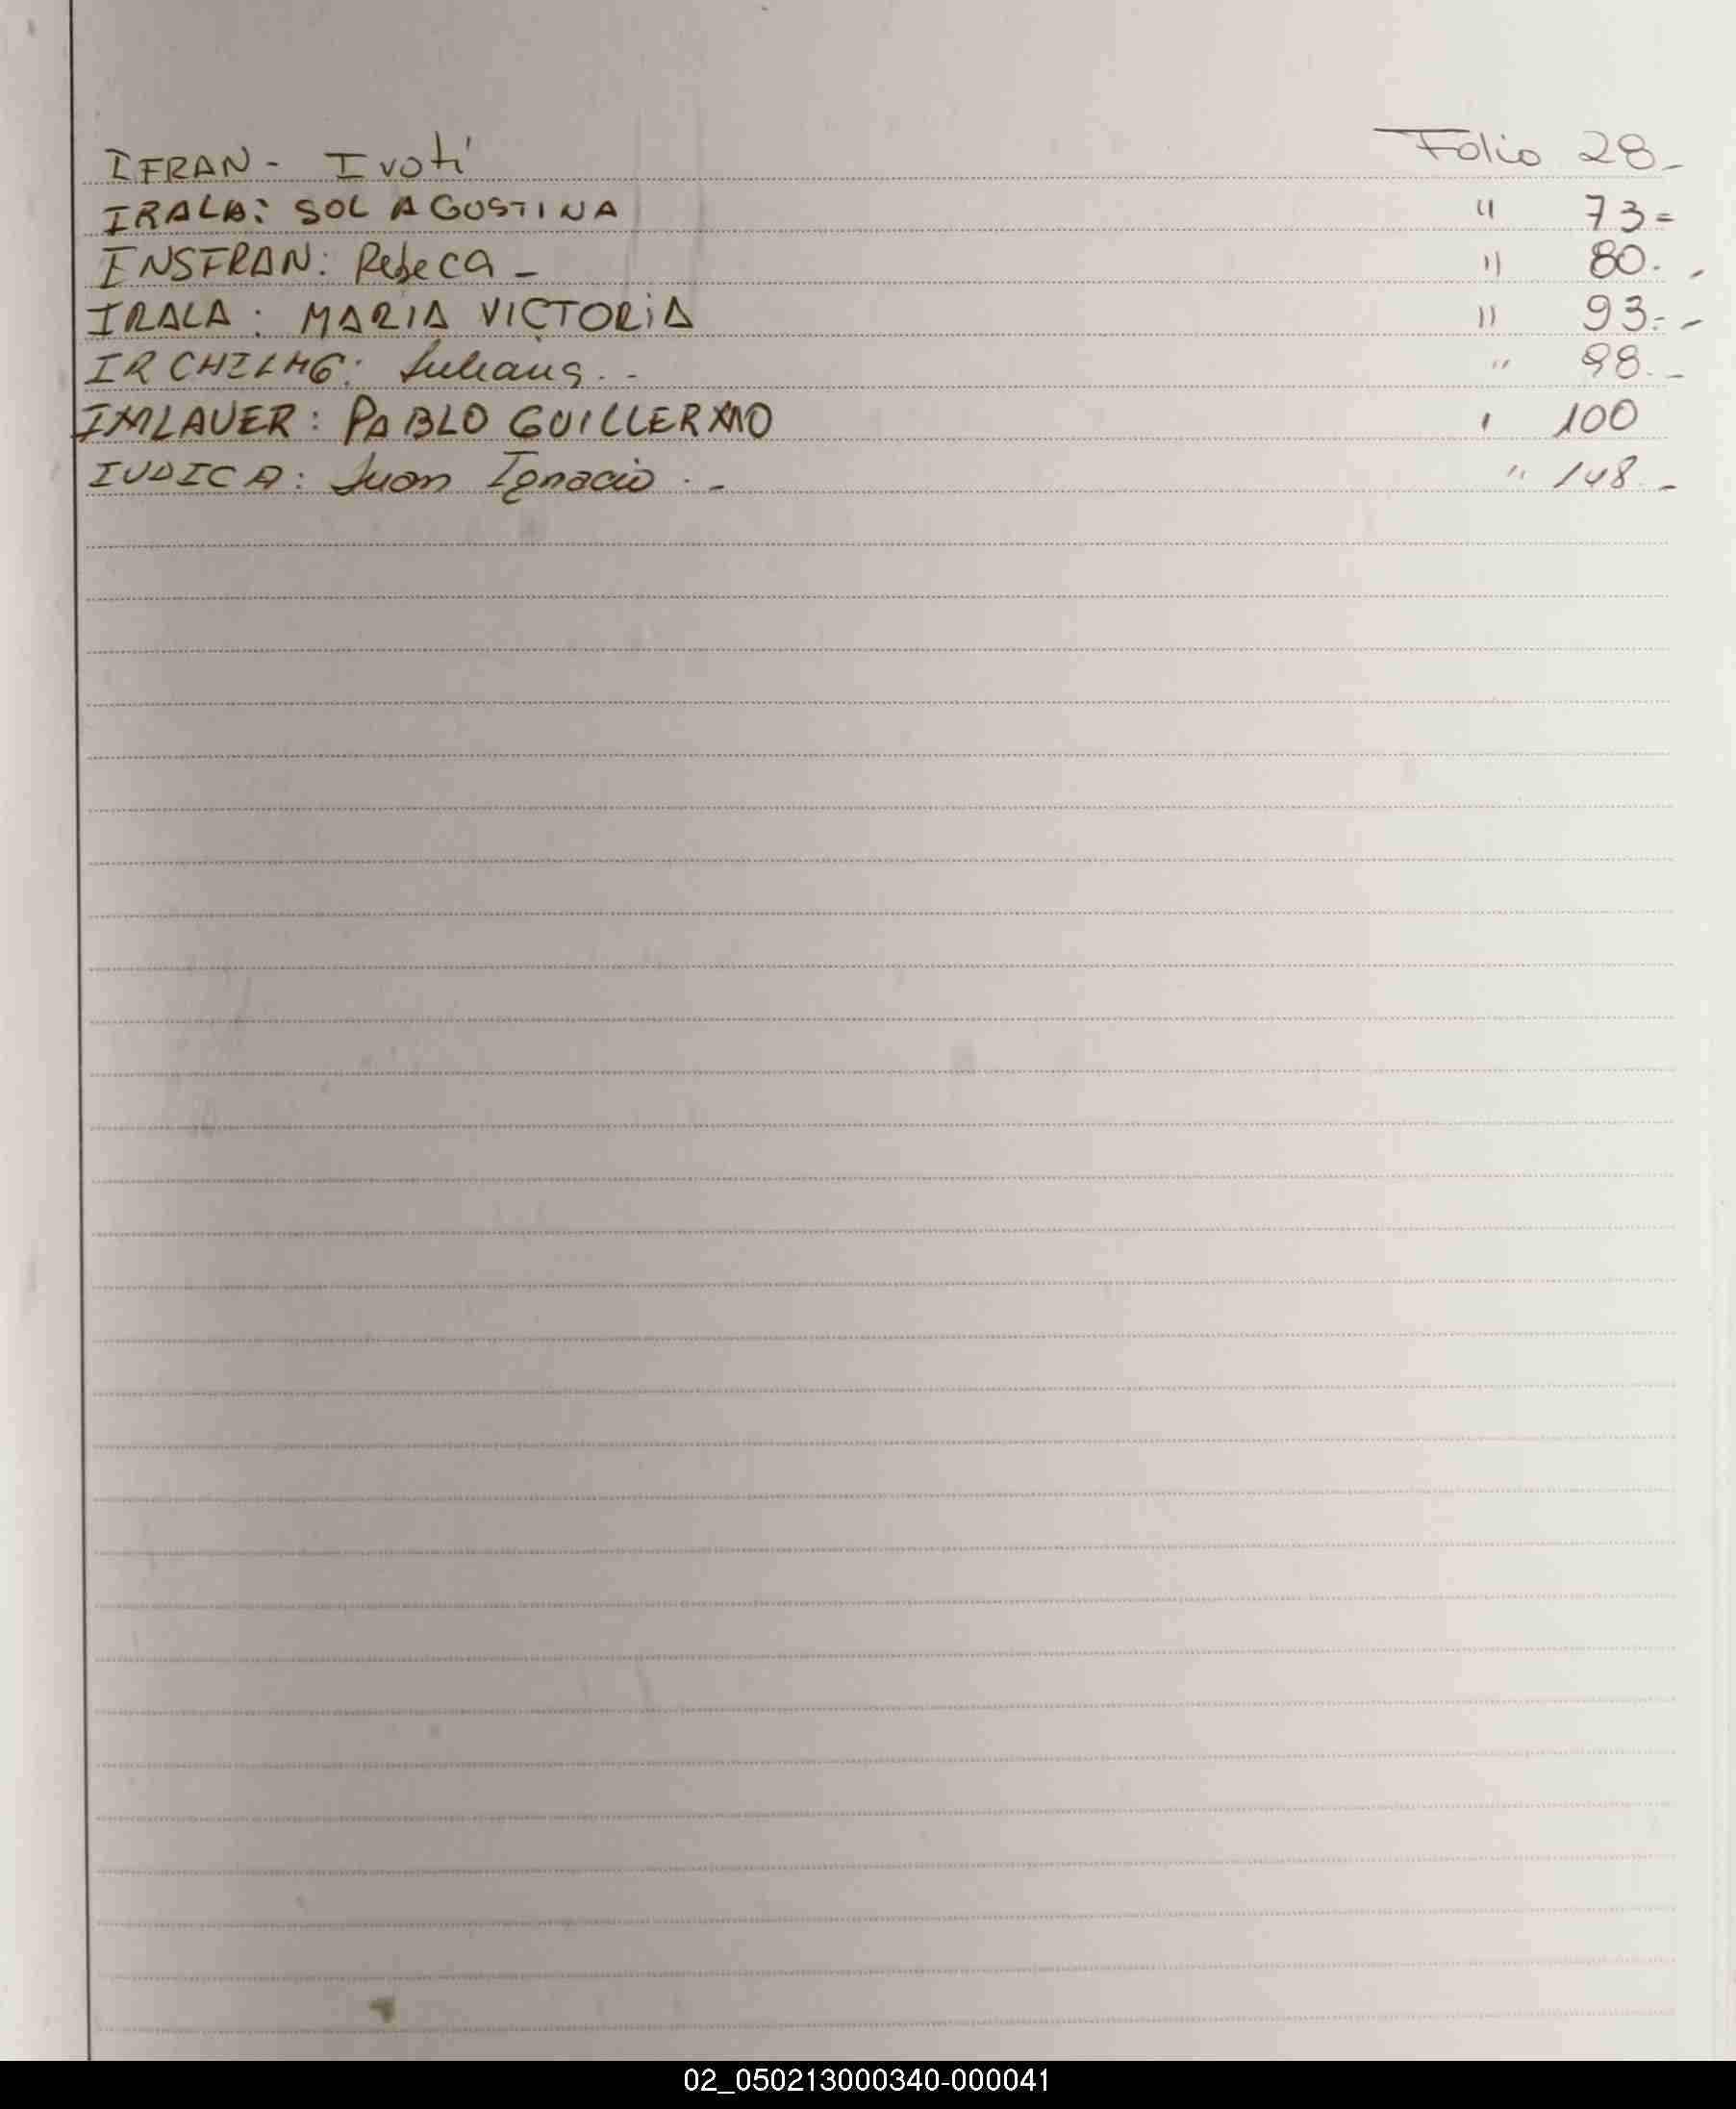 IFRAN - Ivoti Folio 28-
IRALA: SOL AGUSTINA " 73=
INSFRAN: Rebeca - " 80.-
IRALA: MARIA VICTORIA " 93.-
Juliana.- " 98.-
IMLAUER: PABLO GUILLERMO " 100
IUDICA: Juan Ignacio.- " 148.-
02_050213000340-000041